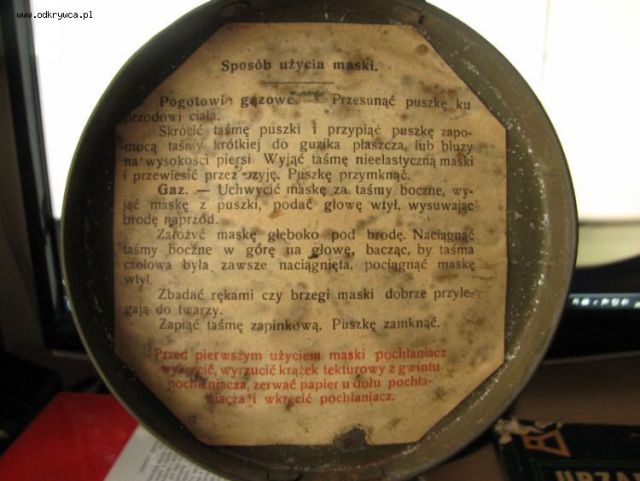 www.odkrywca.pl
Sposób użycia maski.
Pogotowie gazowe. — Przesunąć puszkę ku
przodowi ciała.
Skrócić taśmę puszki i przypiąć puszkę zapo-
mocą taśmy krótkiej do guzika płaszcza, lub bluzy
na wysokości piersi. Wyjąć taśmę nieelastyczną maski
i przewiesić przez szyję. Puszkę przymknąć.
Gaz. — Uchwycić maskę za taśmy boczne, wy-
jąć maskę z puszki, podać głowę wtył, wysuwając
brodę naprzód.
Założyć maskę głęboko pod brodę. Naciągnąć
taśmy boczne w górę na głowę, bacząc, by taśma
czołowa była zawsze naciągnięta, pociągnąć maskę
wtył.
Zbadać rękami czy brzegi maski dobrze przyle-
gają do twarzy.
Zapiąć taśmę zapinkową. Puszkę zamknąć.
Przed pierwszym użyciem maski pochłaniacz
wykręcić, wyrzucić krążek tekturowy z gwintu
pochłaniacza, zerwać papier u dołu pochła-
niacza i wkręcić pochłaniacz.